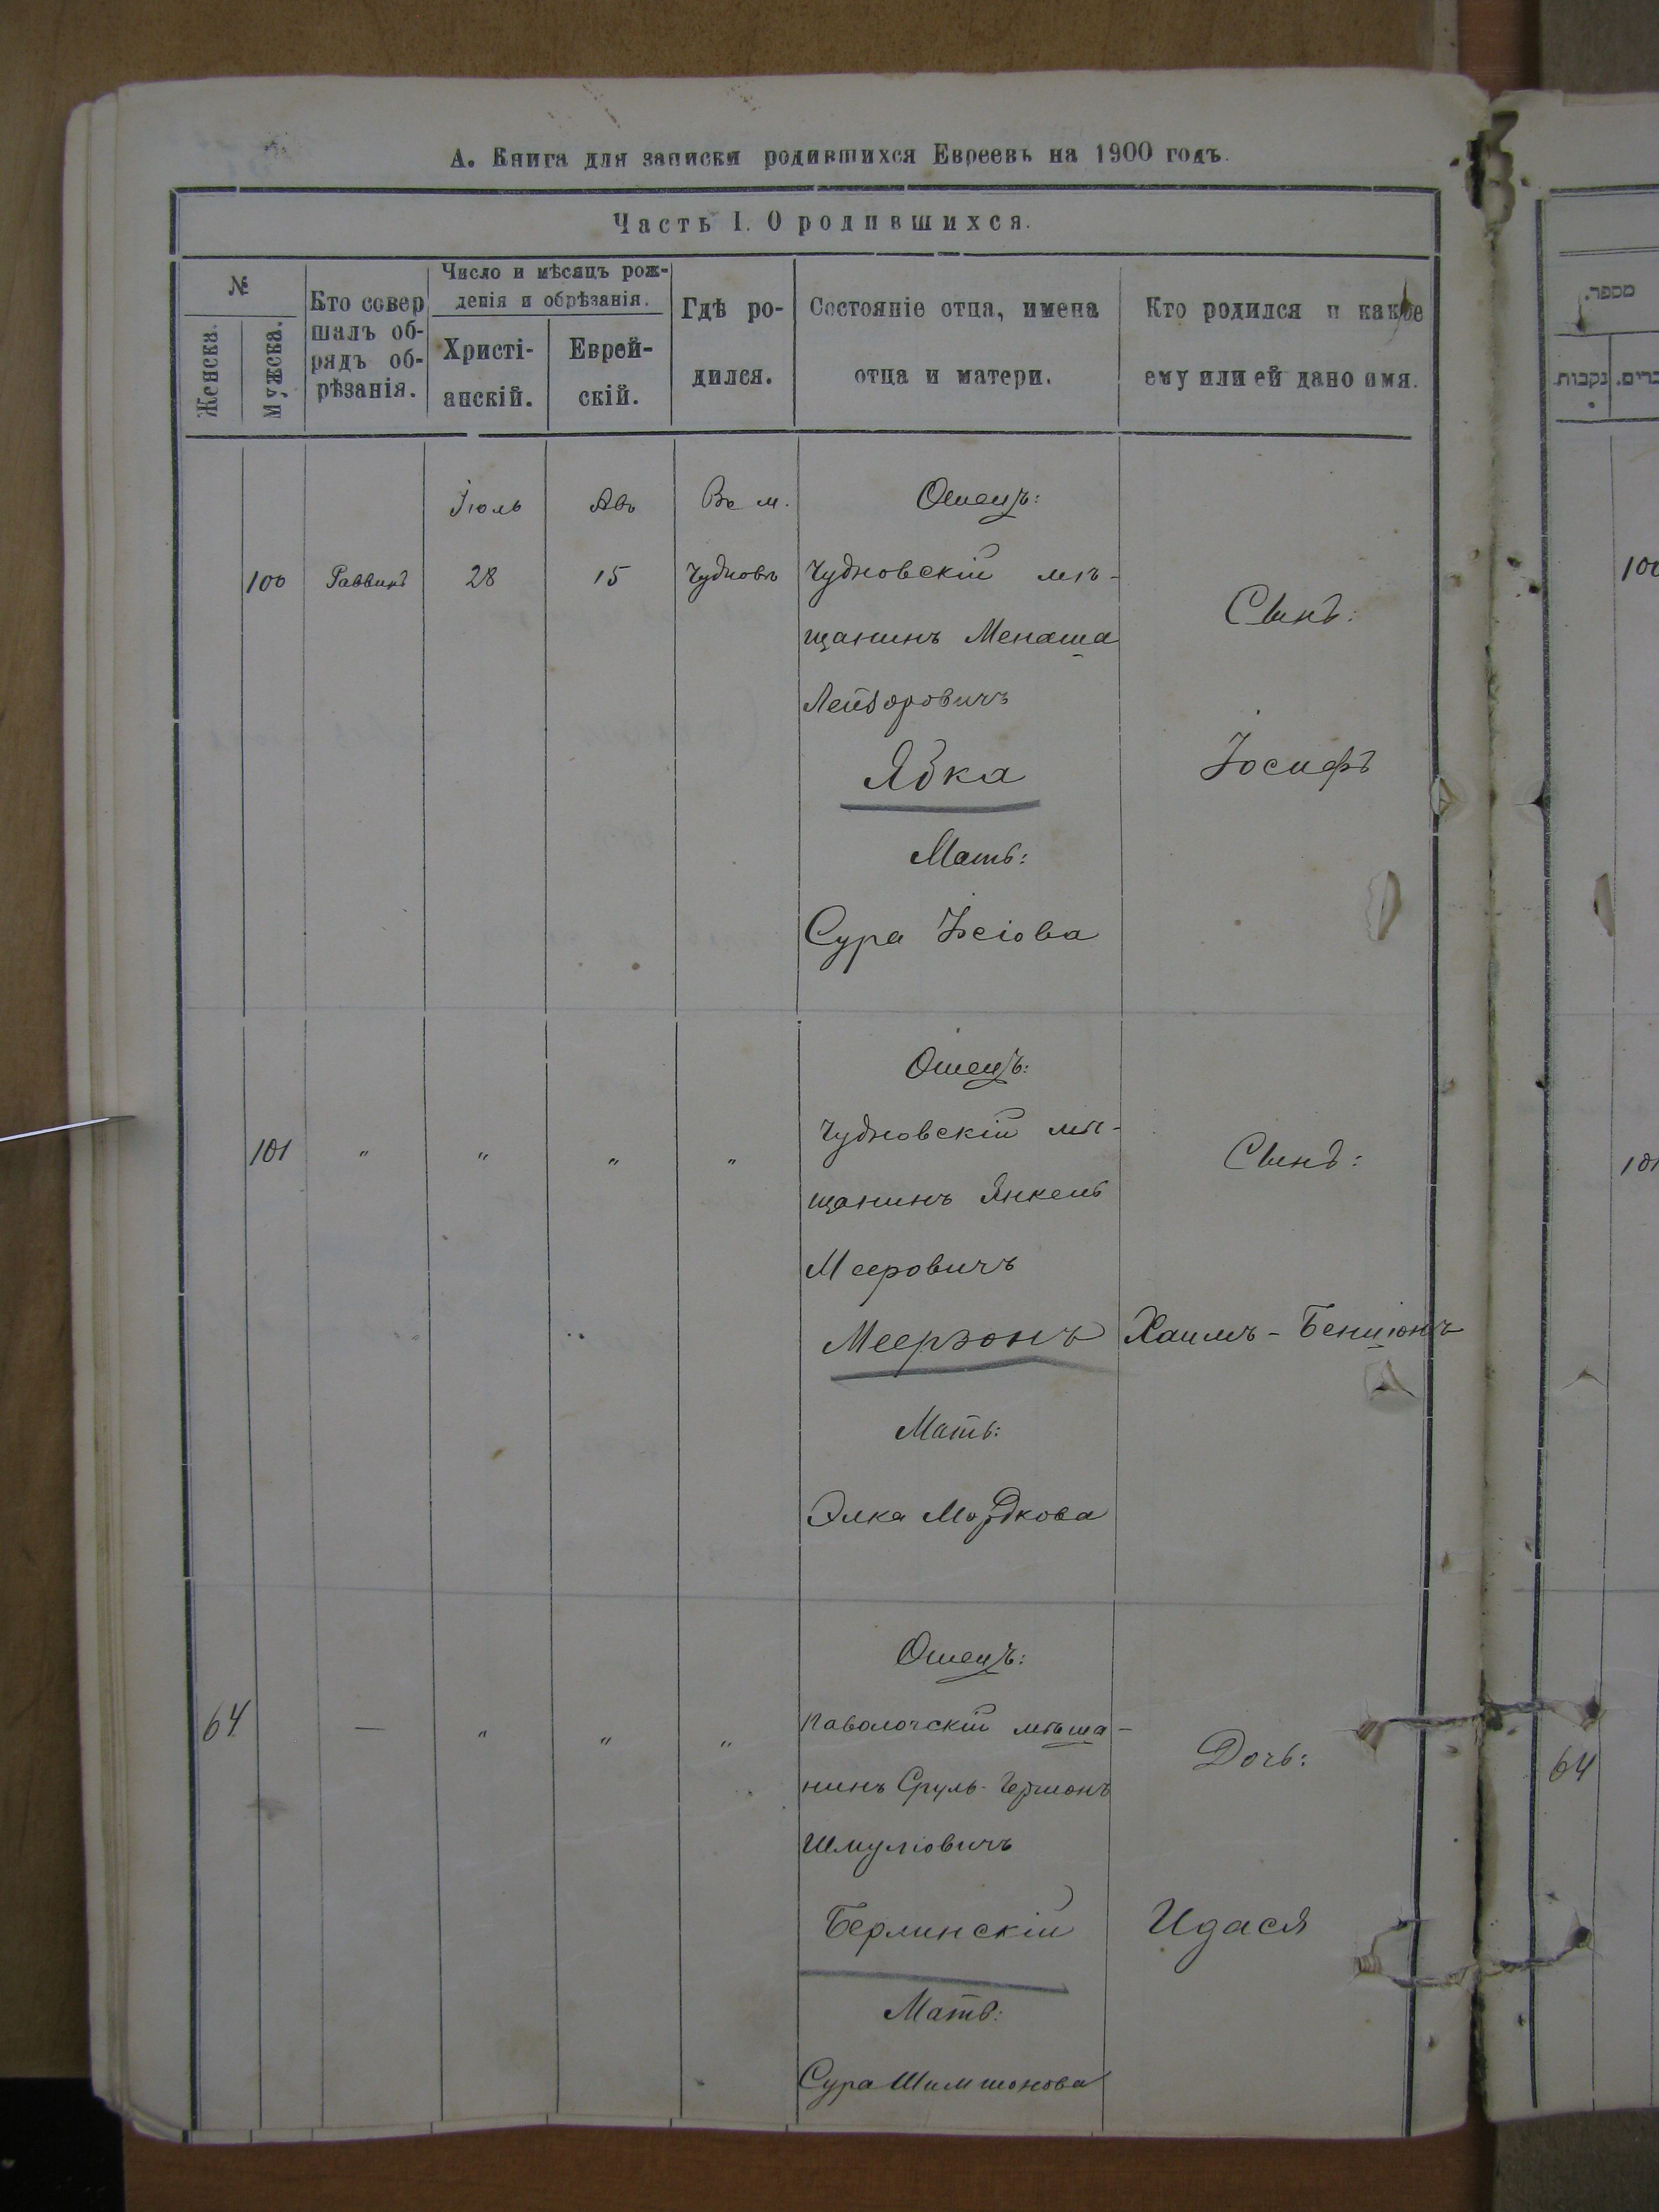 А. Книга для записки родившихся Евреевъ на 1900 годъ.
Часть I. О родившихся.
№
Женска.
Мужска.
Кто совер
шалъ об-
рядъ об-
рѣзанія.
Число и мѣсяцъ рож-
денія и обрѣзанія.
Христі-
анскій.
Еврей-
скій.
Гдѣ ро-
дился.
Состояніе отца, имена
отца и матери.
Кто родился и какое
ему или ей дано имя.
מספר.
נקבות.
Іюль
Авъ
Въ м.
Отецъ:
100
Раввинъ
28
15
Чудновѣ
Чудновскій мѣ-
щанинъ Менаша
Лейзоровичъ
Ябка
Мать:
Сура Іосіова
Сынъ:
Іосифъ
100
101
"
"
"
"
Отецъ:
Чудновскій мѣ-
щанинъ Янкель
Мееровичъ
Меерзонъ
Мать:
Элка Мордкова
Сынъ:
Хаимъ-Бенціонъ
101
64
—
"
"
"
Отецъ:
Паволочскій мѣща-
нинъ Сруль-Гершонъ
Шмуліовичъ
Берлинскій
Мать:
Сура Шимшонова
Дочь:
Идася
64